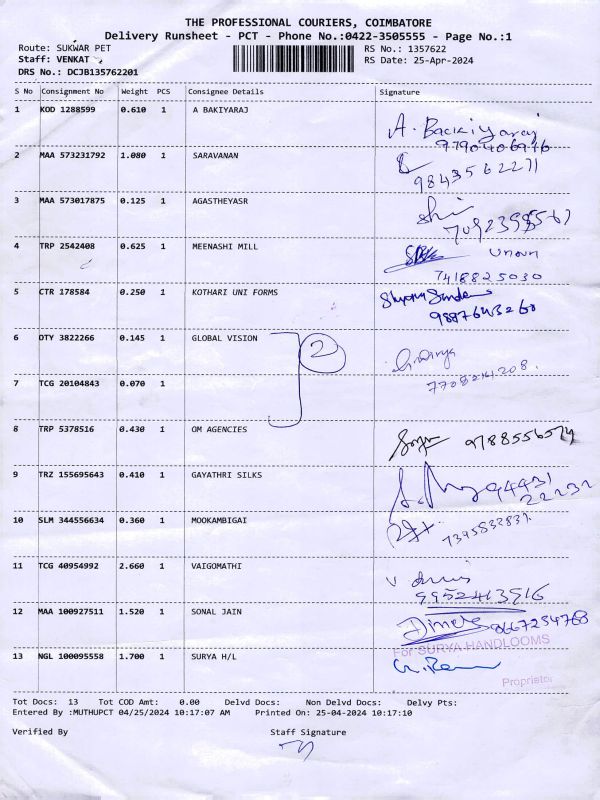 THE PROFESSIONAL COURIERS, COIMBATORE
Delivery Runsheet - PCT - Phone No.:0422-3505555 - Page No.:1
Route: SUKWAR PET RS No.: 1357622
Staff: VENKAT RS Date: 25-Apr-2024
DRS No.: DCJB135762201
S No Consignment No Weight PCS Consignee Details Signature
1 KOD 1288599 0.610 1 A BAKIYARAJ
A. Backiyaraj
9790406916
2 MAA 573231792 1.080 1 SARAVANAN
9843562271
3 MAA 573017875 0.125 1 AGASTHEYASR
4 TRP 2542408 0.625 1 MEENASHI MILL
7418825030
5 CTR 178584 0.250 1 KOTHARI UNI FORMS
9887643260
6 DTY 3822266 0.145 1 GLOBAL VISION
2
7 TCG 20104843 0.070 1
8 TRP 5378516 0.430 1 OM AGENCIES
9788556574
9 TRZ 155695643 0.410 1 GAYATHRI SILKS
94431
22232
10 SLM 344556634 0.360 1 MOOKAMBIGAI
11 TCG 40954992 2.660 1 VAIGOMATHI
9952413916
12 MAA 100927511 1.520 1 SONAL JAIN
For SURYA HANDLOOMS
13 NGL 100095558 1.700 1 SURYA H/L
Proprietor
Tot Docs: 13 Tot COD Amt: 0.00 Delvd Docs: Non Delvd Docs: Delvy Pts:
Entered By :MUTHUPCT 04/25/2024 10:17:07 AM Printed On: 25-04-2024 10:17:10
Verified By Staff Signature